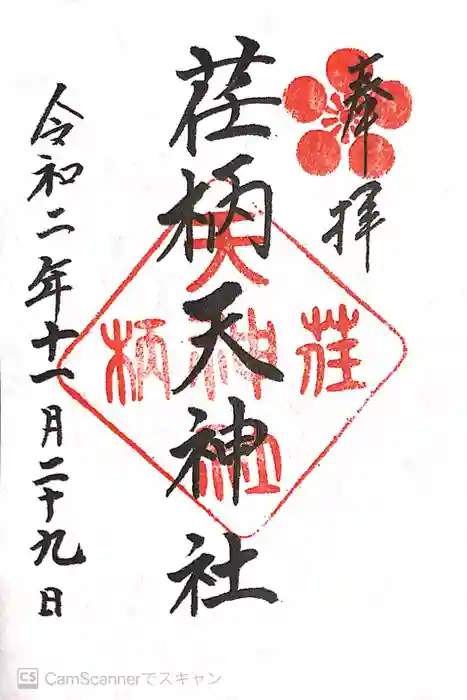 奉拝
荏柄天神社
荏柄天神社
令和二年十一月二十九日
CS CamScannerでスキャン